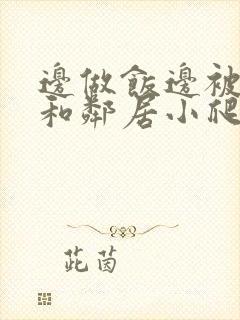 邊做飯邊被
和鄰居小爬
茈茵